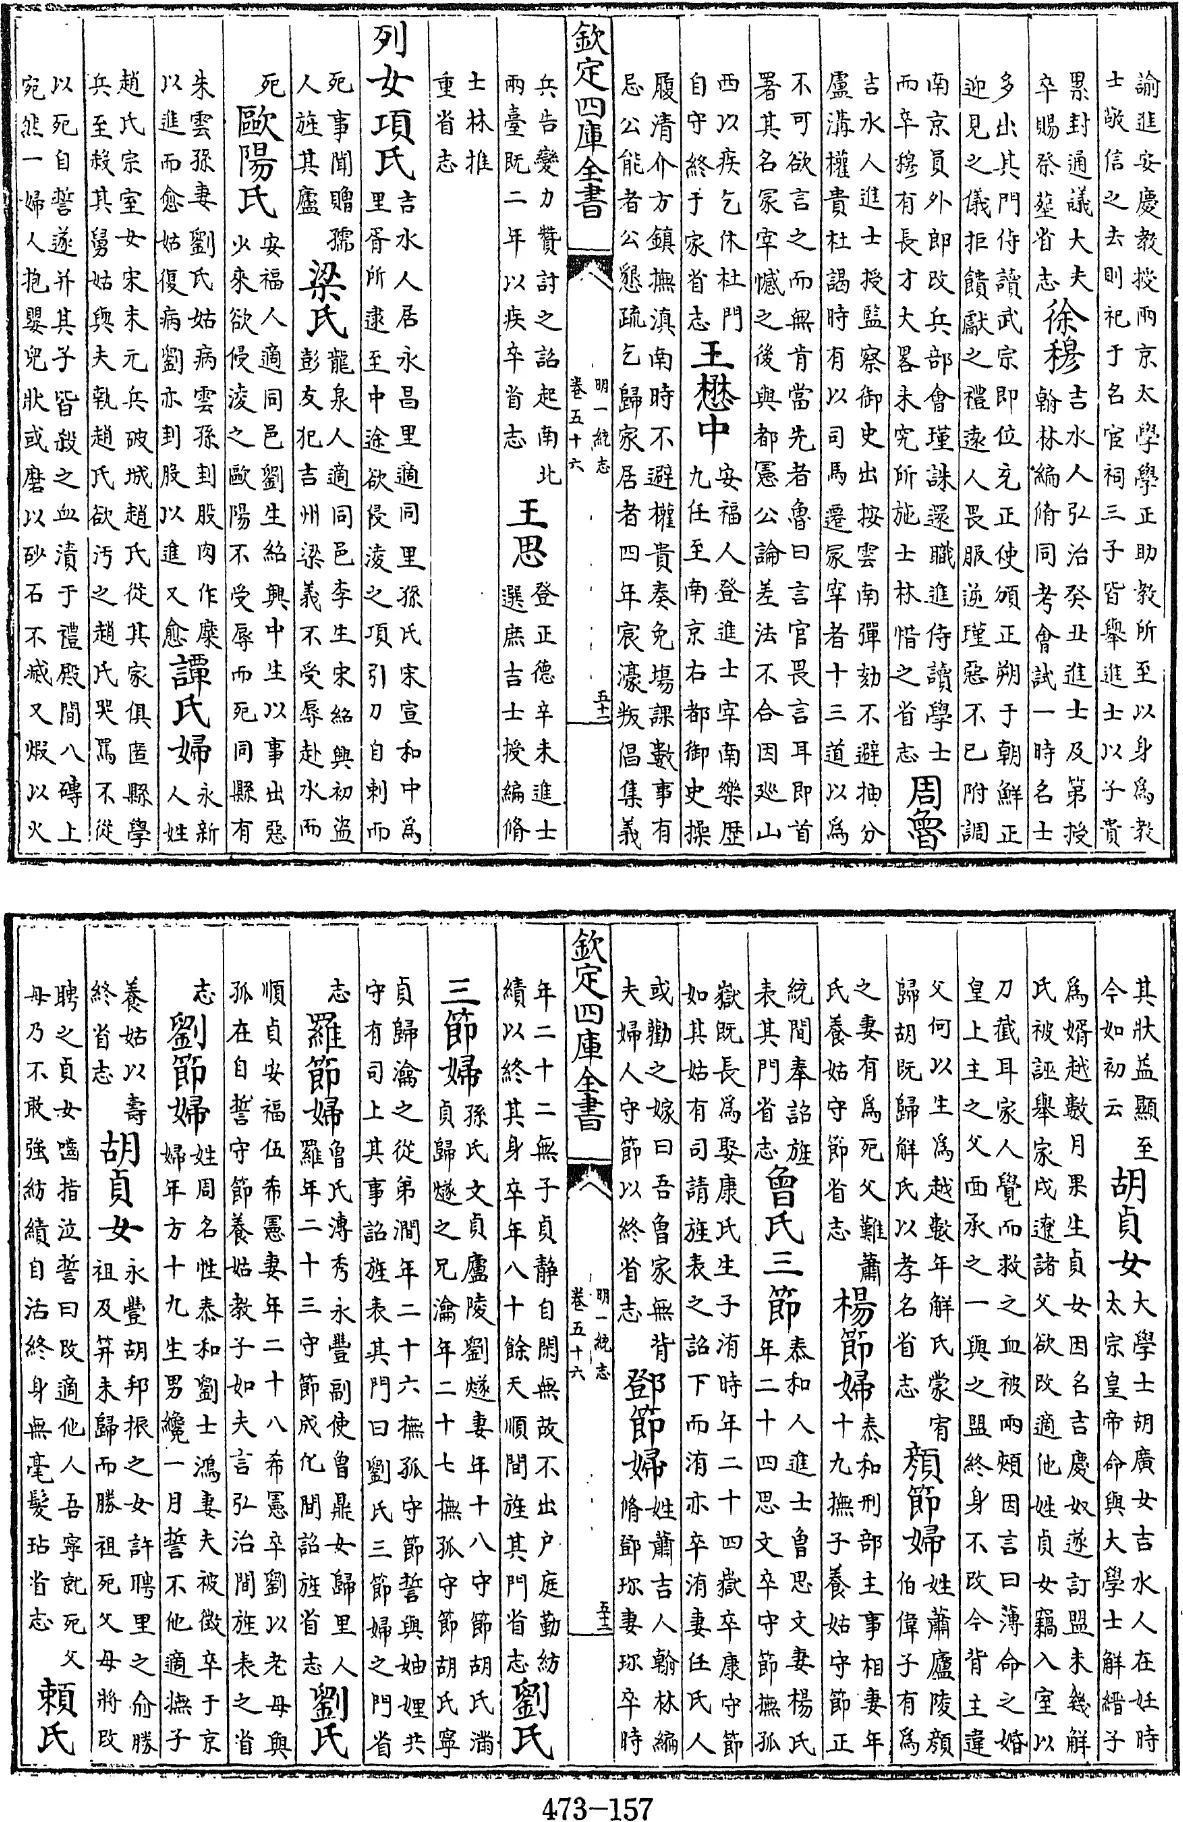 諭進安慶教授兩京太學學正助教所至以身為教
士敬信之去則祀于名宦祠三子皆舉進士以子貴
累封通議大夫
卒賜祭塟省志
徐穆
吉水人弘治癸丑進士及第授
翰林編脩同考會試一時名士
多出其門侍讀武宗即位充正使頒正朔于朝鮮正
迎見之儀拒饋獻之禮遠人畏服逆瑾惡不已附調
南京員外郎改兵部會瑾誅還職進侍讀學士
而卒穆有長才大畧未究所施士林惜之省志
周魯
吉水人進士授監察御史出按雲南彈劾不避抽分
盧溝權貴杜謁時有以司馬遷冢宰者十三道以為
不可欲言之而無肯當先者魯曰言官畏言耳即首
署其名冢宰憾之後與都憲公論差法不合因廵山
西以疾乞休杜門
自守終于家省志
王懋中
安福人登進士宰南樂歷
九任至南京右都御史操
履清介方鎮撫滇南時不避權貴奏免塲課數事有
忌公能者公懇疏乞歸家居者四年宸濠叛倡集義
欽定四庫全書
明一統志
卷五十六
五十二
兵告變力贊討之詔起南北
兩臺既二年以疾卒省志
王思
登正德辛未進士
選庶吉士授編脩
士林推
重省志
列女項氏
吉水人居永昌里適同里孫氏宋宣和中為
里胥所逮至中途欲侵淩之項引刀自刺而
死事聞贈孺
人旌其廬
梁氏
龍泉人適同邑李生宋紹興初盜
彭友犯吉州梁義不受辱赴水而
死
歐陽氏
安福人適同邑劉生紹興中生以事出惡
少來欲侵淩之歐陽不受辱而死同縣有
朱雲孫妻劉氏姑病雲孫刲股肉作糜
以進而愈姑復病劉亦刲股以進又愈
譚氏婦
永新
人姓
趙氏宗室女宋末元兵破城趙氏從其家俱匿縣學
兵至殺其舅姑與夫執趙氏欲汚之趙氏哭罵不從
以死自誓遂并其子皆殺之血漬于禮殿間八磚上
宛然一婦人抱嬰兒狀或磨以砂石不滅又煅以火
其狀益顯至
今如初云
胡貞女
大學士胡廣女吉水人在姙時
太宗皇帝命與大學士解縉子
為婿越數月果生貞女因名吉慶奴遂訂盟未幾解
氏被誣舉家戍遼諸父欲改適他姓貞女竊入室以
刀截耳家人覺而救之血被兩頰因言曰薄命之婚
皇上主之父面承之一與之盟終身不改今背主違
父何以生為越數年解氏蒙宥
歸胡既歸解氏以孝名省志
顔節婦
姓蕭廬陵顔
伯偉子有為
之妻有為死父難蕭
氏養姑守節省志
楊節婦
泰和刑部主事相妻年
十九撫子養姑守節正
統間奉詔旌
表其門省志
曾氏三節
泰和人進士曾思文妻楊氏
年二十四思文卒守節撫孤
嶽既長為娶康氏生子洧時年二十四嶽卒康守節
如其姑有司請旌表之詔下而洧亦卒洧妻任氏人
或勸之嫁曰吾曾家無背
夫婦人守節以終省志
鄧節婦
姓蕭吉人翰林編
脩鄧珎妻珎卒時
欽定四庫全書
明一統志
卷五十六
五十三
年二十二無子貞靜自閑無故不出户庭勤紡
績以終其身卒年八十餘天順間旌其門省志
劉氏
三節婦
孫氏文貞廬陵劉燧妻年十八守節胡氏滿
貞歸燧之兄瀹年二十七撫孤守節胡氏寧
貞歸瀹之從第澗年二十六撫孤守節誓與妯娌共
守有司上其事詔旌表其門曰劉氏三節婦之門省
志
羅節婦
曾氏溥秀永豐副使曾鼎女歸里人
羅年二十三守節成化間詔旌省志
劉氏
順貞安福伍希憲妻年二十八希憲卒劉以老母與
孤在自誓守節養姑教子如夫言弘治間旌表之省
志
劉節婦
姓周名性泰和劉士鴻妻夫被徴卒于京
婦年方十九生男纔一月誓不他適撫子
養姑以壽
終省志
胡貞女
永豐胡邦振之女許聘里之俞勝
祖及筓未歸而勝祖死父母將改
聘之貞女嚙指泣誓曰改適他人吾寧訖死父
母乃不敢強紡績自活終身無毫髮玷省志
賴氏
473-157